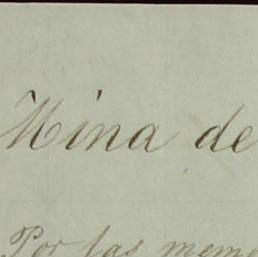 Mina de
Por las memo